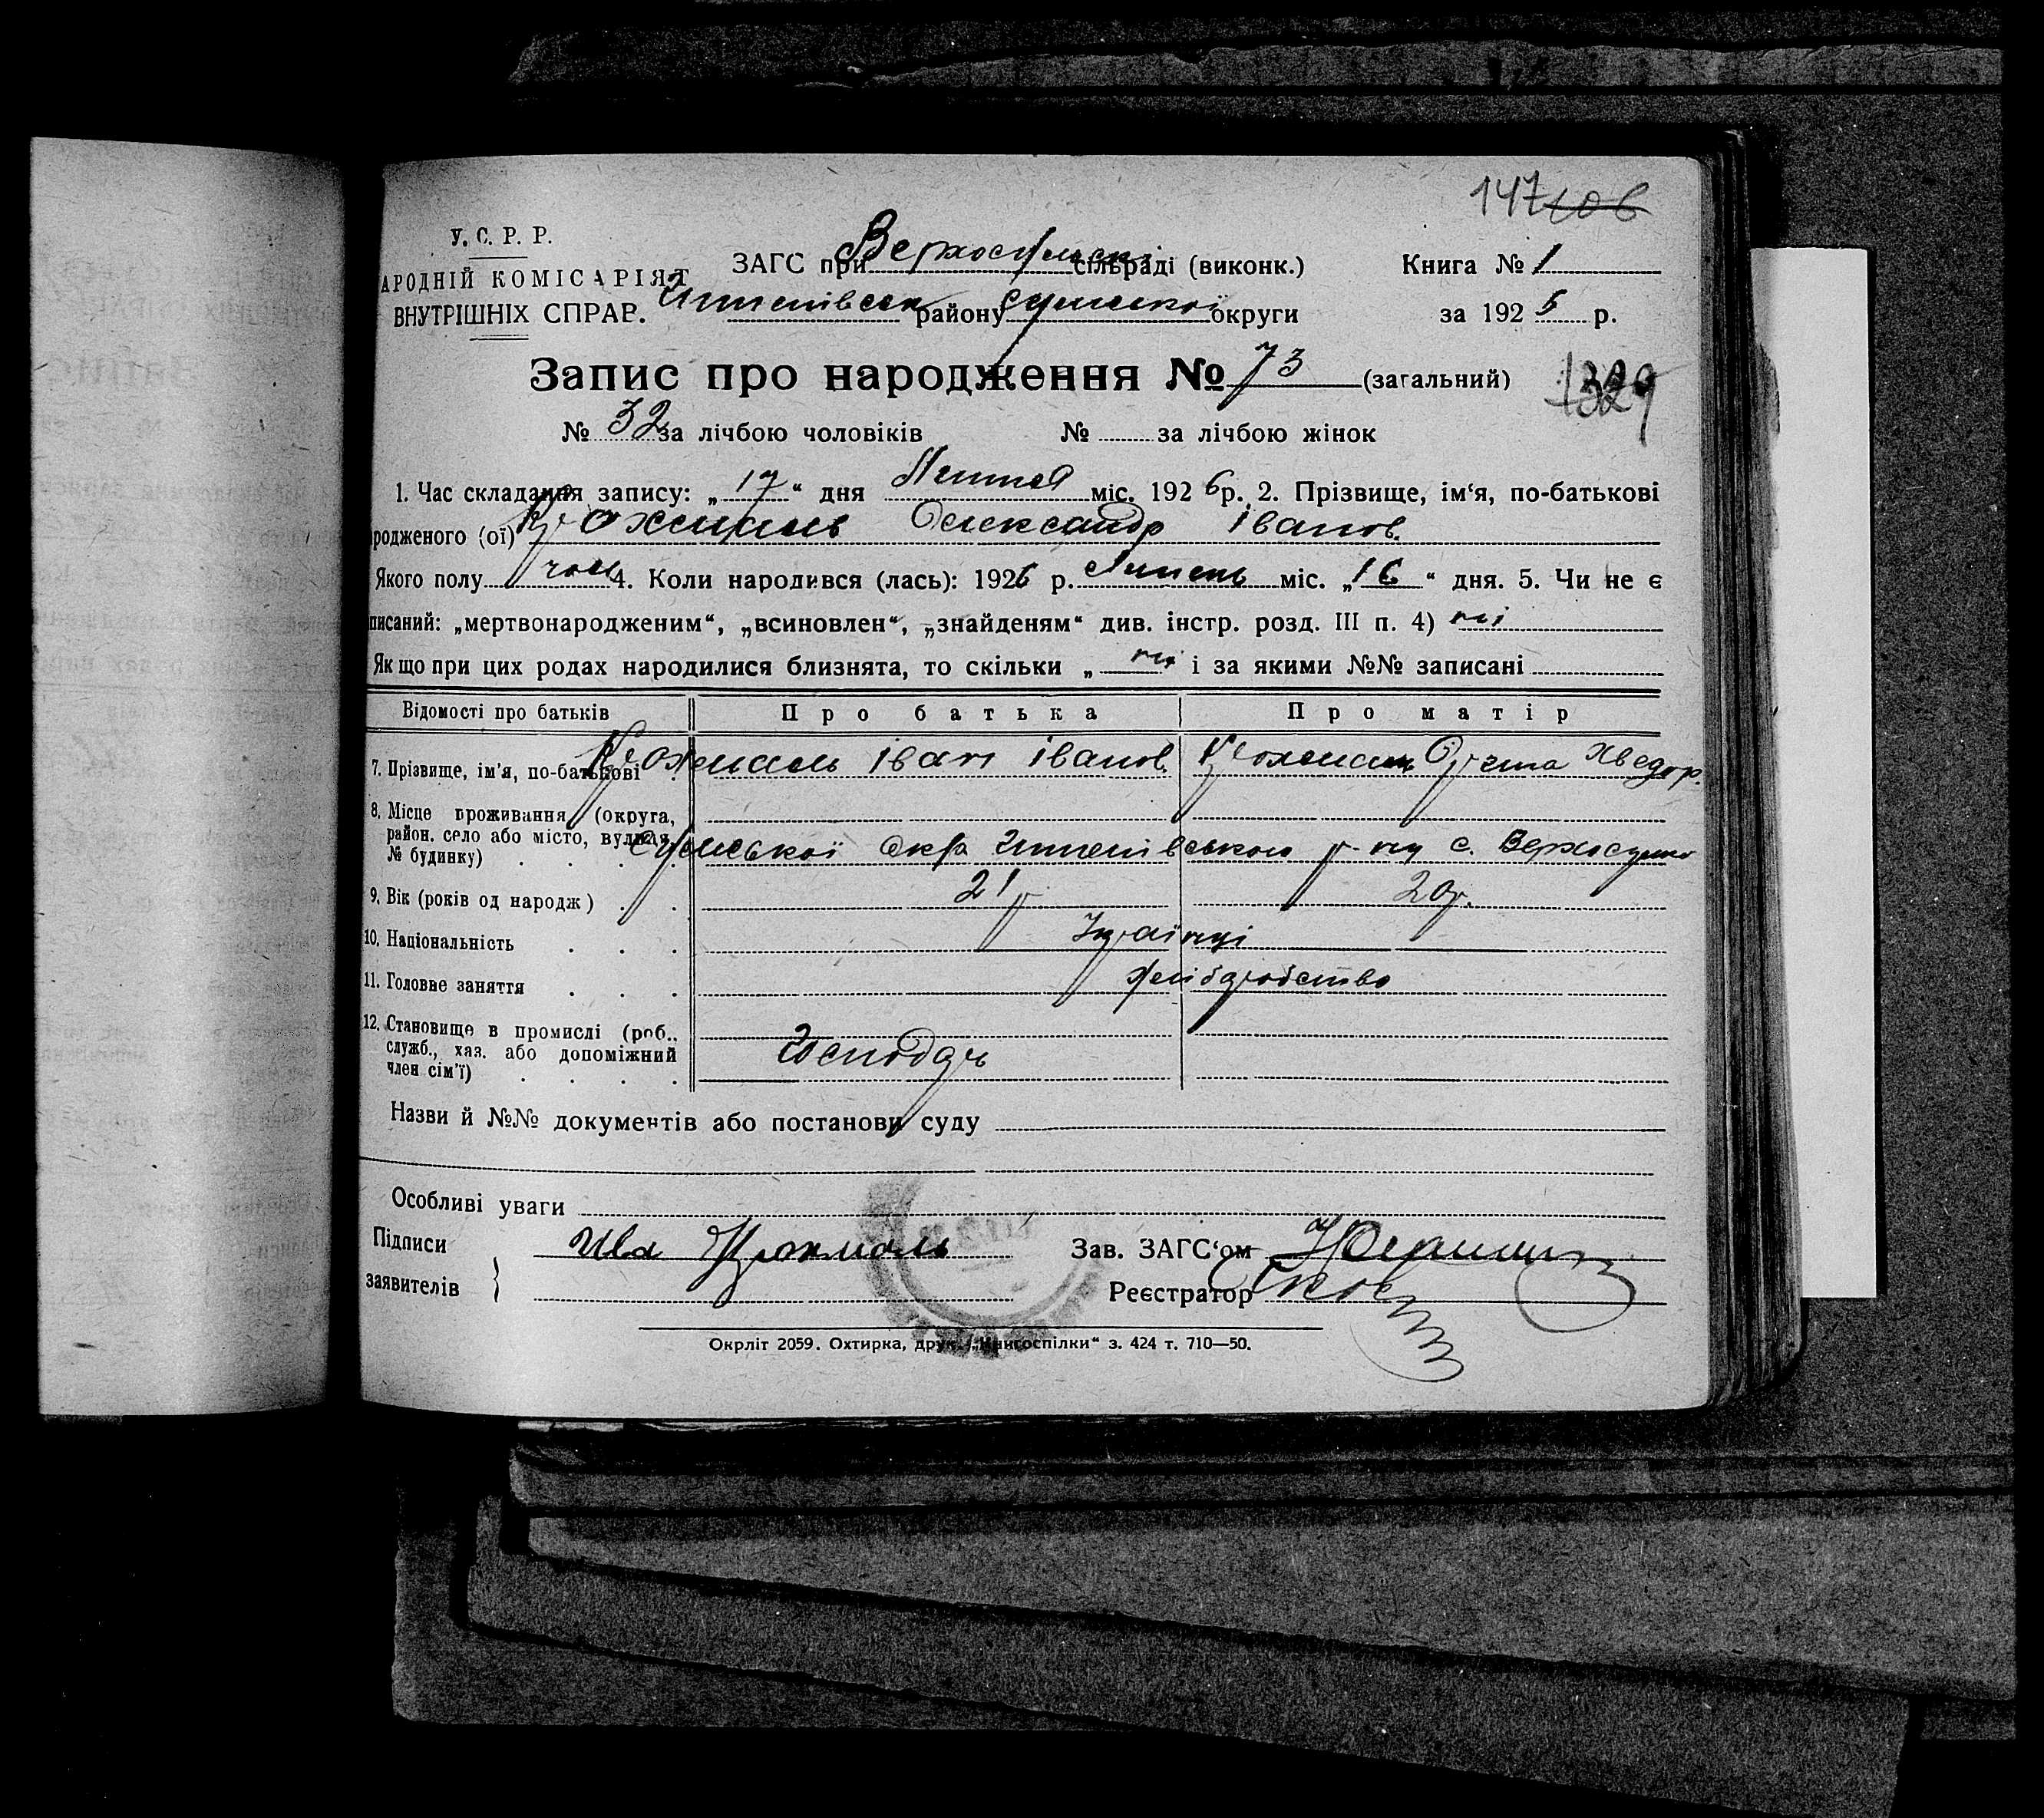 147 106
У. С. Р. Р.
АРОДНІЙ КОМІСАРІЯТ
ВНУТРІШНІХ СПРАВ.
ЗАГС при Верхосульськ сільраді (виконк.)
Штепівськ району Сумської округи
Книга № 1
за 1925 р.
Запис про народження № 73 (загальний)
1329
№ 32 за лічбою чоловіків № за лічбою жінок
1. Час складання запису: „17“ дня Липня міс. 1926 р. 2. Прізвище, ім‘я, по-батькові
родженого (ої) Крохмаль Олександр Іванов.
Якого полу чол 4. Коли народився (лась): 1926 р. Липень міс. „16“ дня. 5. Чи не є
писаний: „мертвонародженим“, „всиновлен“, „знайденям“ див. інстр. розд. III п. 4) ні
Якщо при цих родах народилися близнята, то скільки „ ні і за якими №№ записані
Відомості про батьків Про батька Про матір
7. Прізвище, ім‘я, по-батькові Крохмаль Іван Іванов. Крохмаль Хведор.
8. Місце проживання (округа,
район. село або місто, вулиця,
№ будинку) Сумської Окр Штепівського р-ну с. Верхосула
9. Вік (років од народж) 21 р 20 р.
10. Національність Українці
11. Головне заняття Хліборобство
12. Становище в промислі (роб.,
служб., хаз. або допоміжний
член сім‘ї) Господарь
Назви й №№ документів або постанови суду
Особливі уваги
Підписи
заявителів } Ива Крохмоль
Зав. ЗАГС‘ом
Реєстратор
Окрліт 2059. Охтирка, друк. „Книгоспілки“ з. 424 т. 710—50.